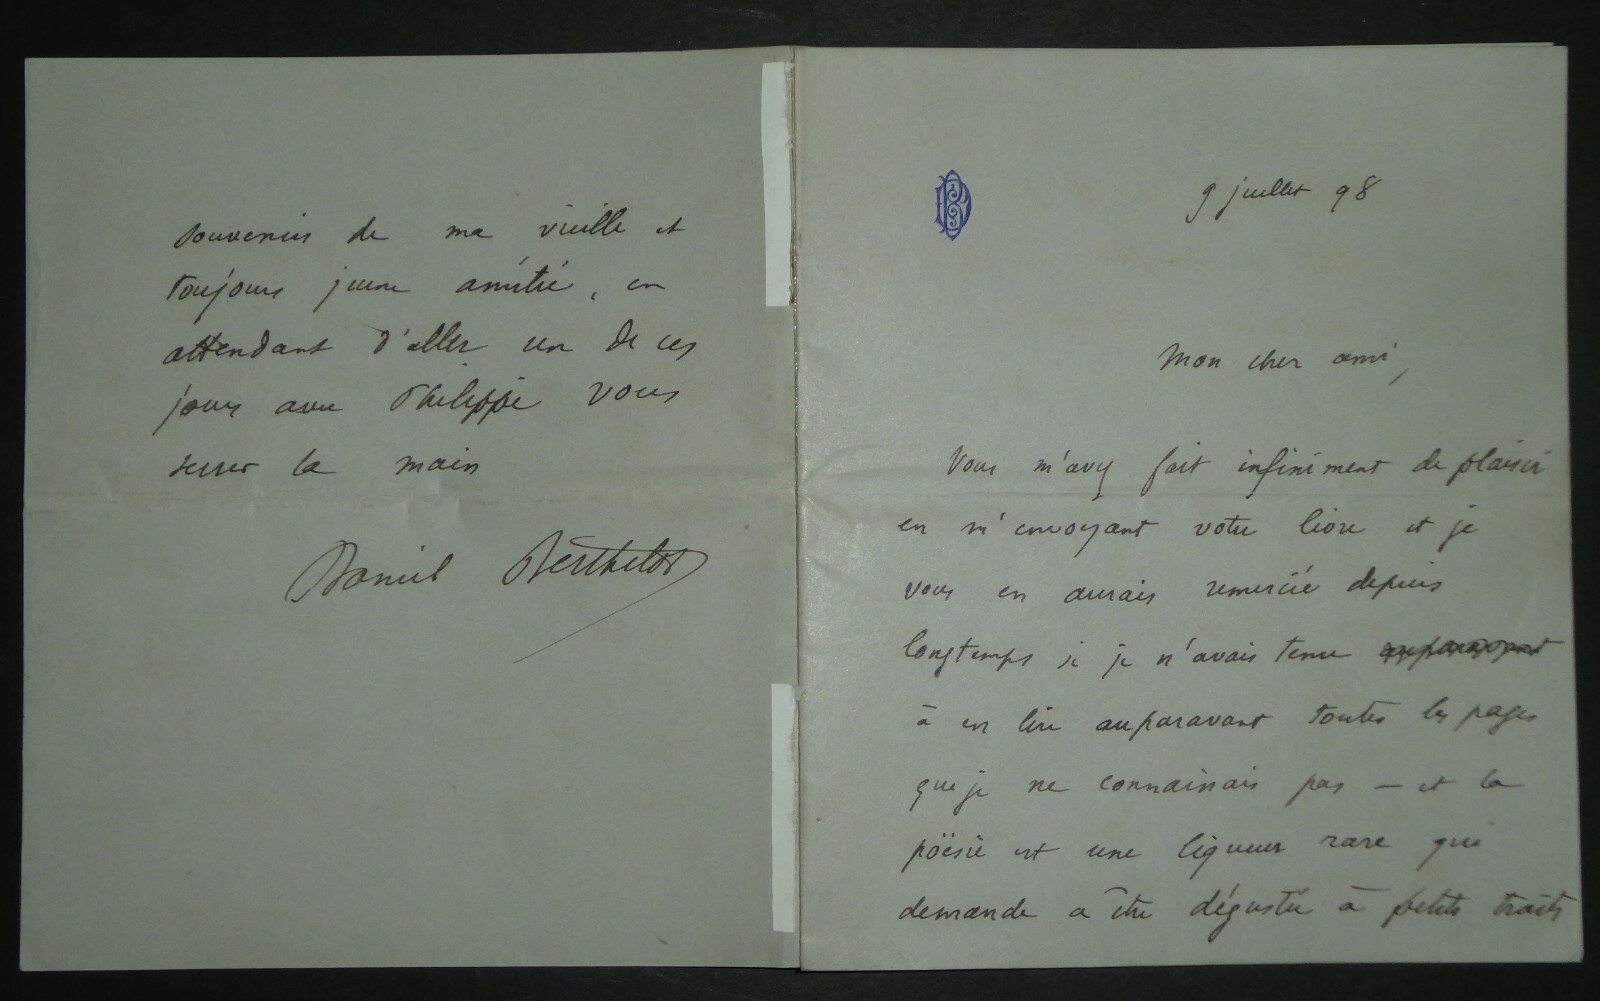 9 juillet 98
Mon cher ami,
Vous m'avez fait infiniment de plaisir
en m'envoyant votre livre et je
vous en aurais remercié depuis
longtemps si je n'avais tenu auparavant
à en lire auparavant toutes les pages
que je ne connaissais pas — et la
poësie est une liqueur rare qui
demande a être dégustée à petits traits
souvenirs de ma vieille et
toujours jeune amitié, en
attendant d'aller un de ces
jours avec Philippe vous
serrer la main
Daniel Berthelot